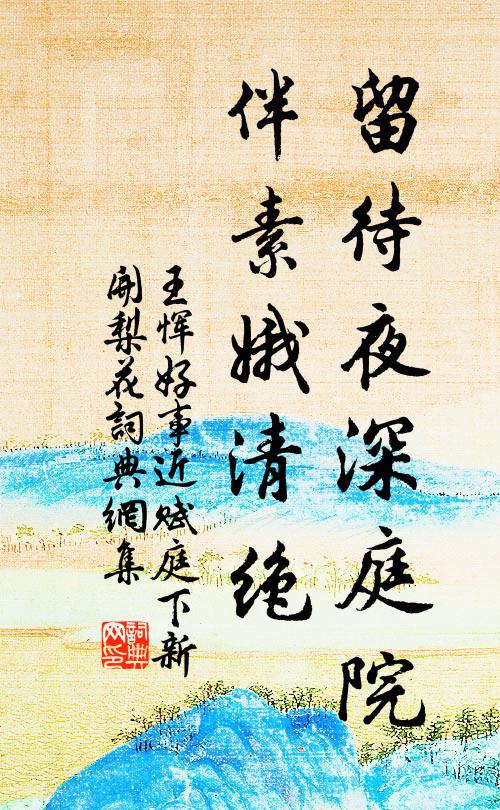 留待夜深庭院
伴素娥清绝
王恽好事近赋庭下新
開梨花詞典網集
詞典
网印